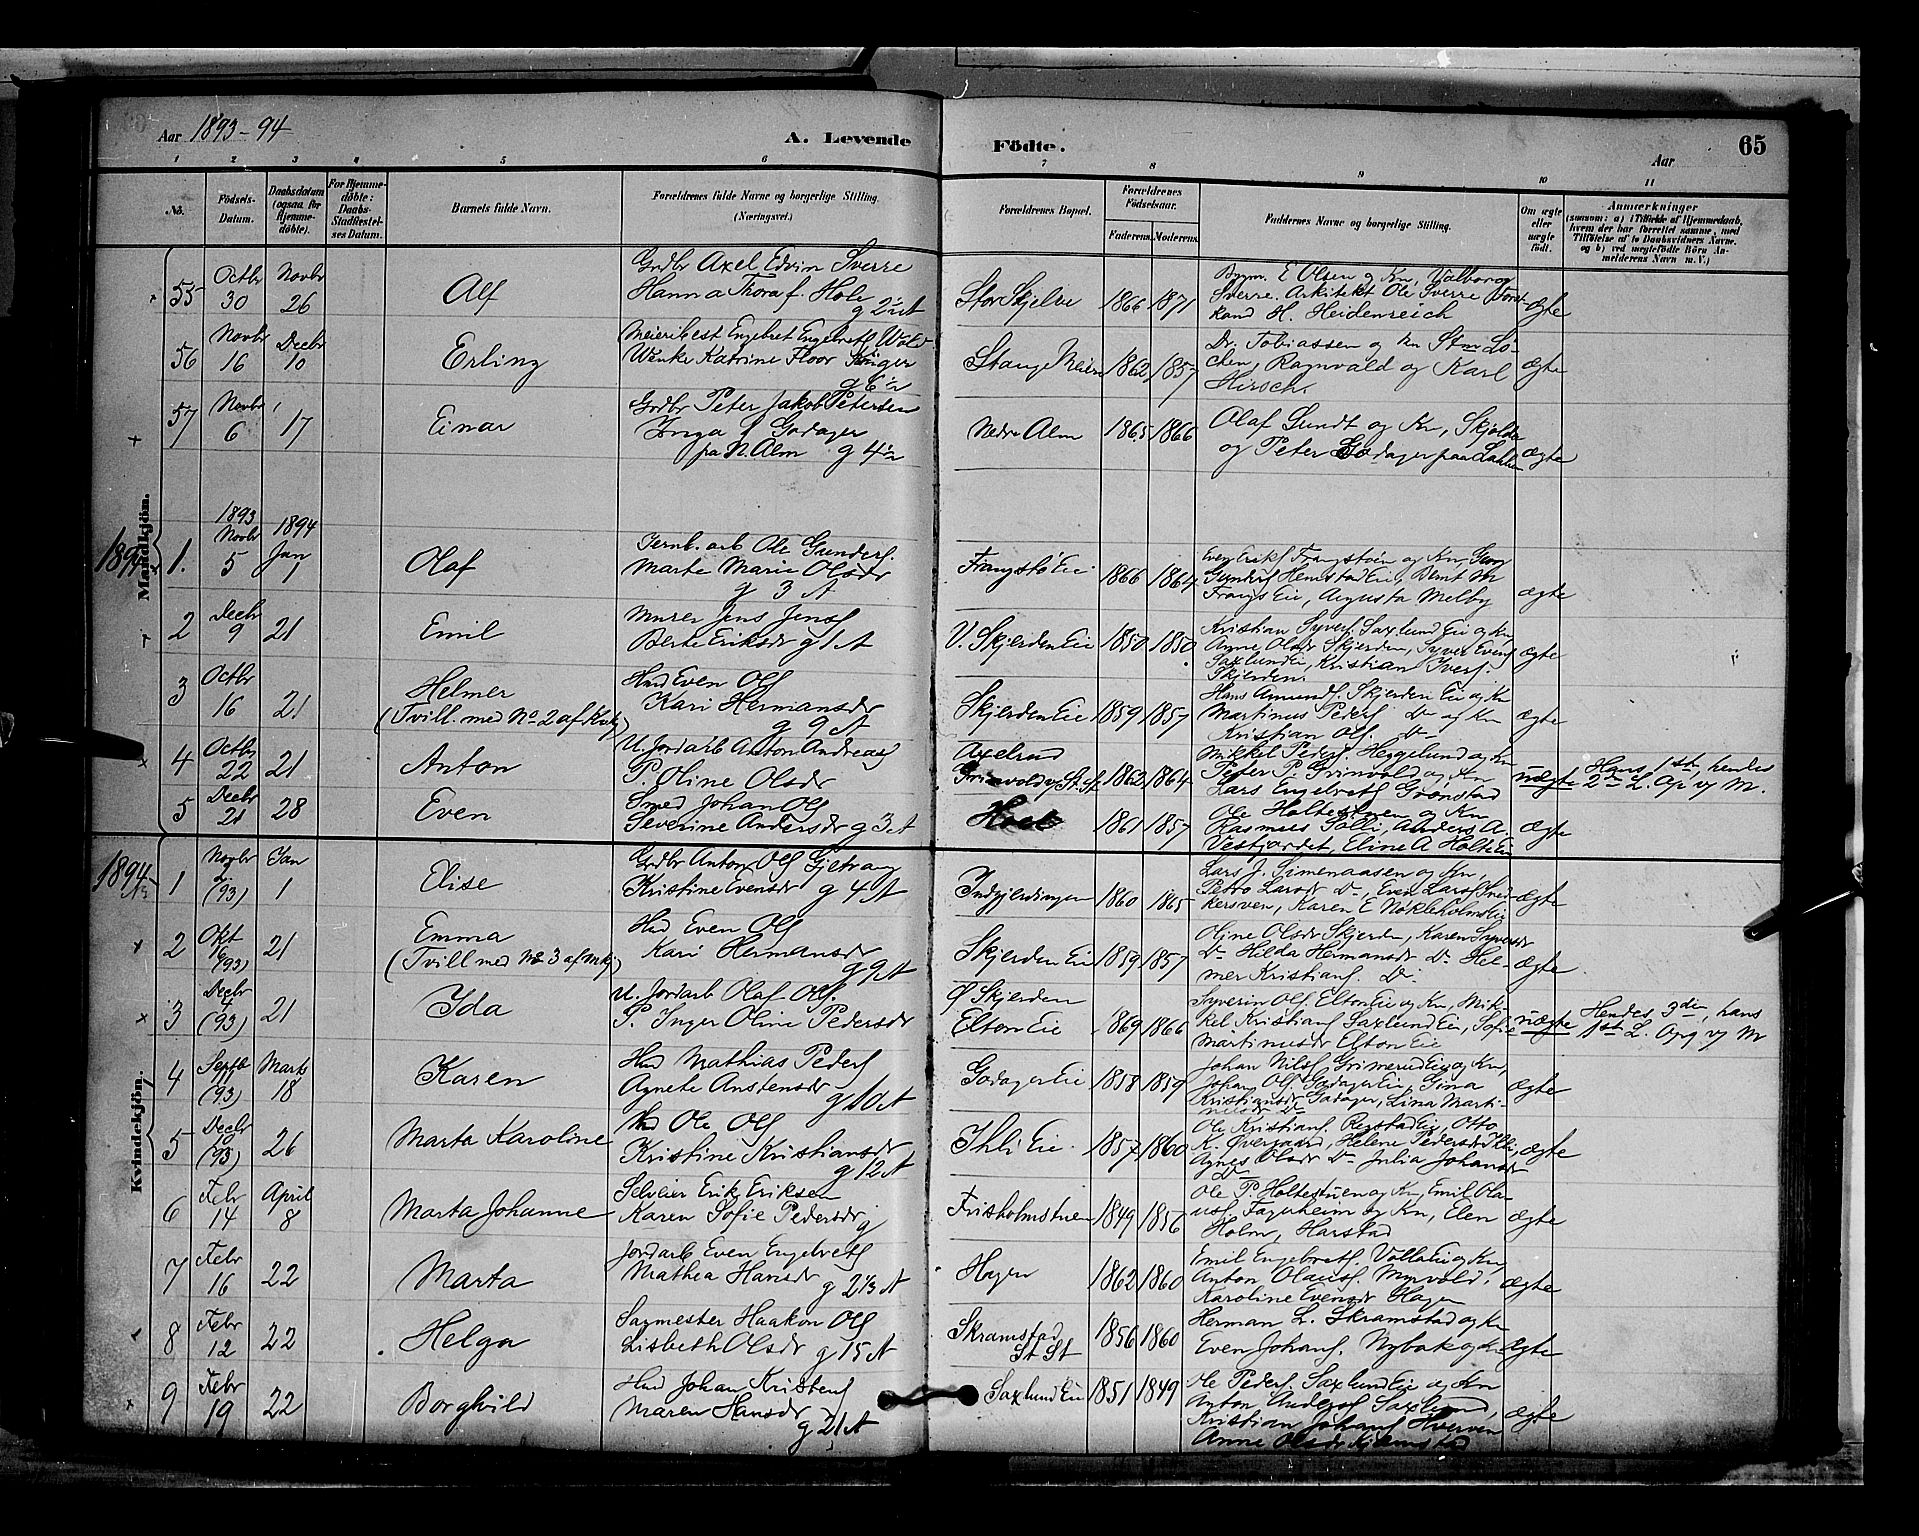 Aar 1893-94
A. Levende Födte.
Aar
65
1 2 3 4 5 6 7 8 9 10 11
No.
Födsels-Datum.
Daabsdatum (ogsaa for Hjemmedöbte).
For Hjemmedöbte: Daabs-Stadfæstelses Datum.
Barnets fulde Navn.
Forældrenes fulde Navne og borgerlige Stilling. (Næringsvei.)
Forældrenes Bopæl.
Forældrenes Födselsaar.
Faderens. Moderens.
Faddernes Navne og borgerlige Stilling.
Om ægte eller uægte födt.
Anmærkninger
(saasom: a) i Tilfælde af Hjemmedaab, hvem der har forrettet samme, med Tilföielse af to Daabsvidners Navne, og b) ved uægtefödte Börn Anmelderens Navn m. V.)
Mandkjön.
55 Octbr 30 Novbr 26 Alf
Grdbr Axel Edvin Sverre
Hanna Thora f. Hole
Stor Skjelve 1866 1871
Bygm. E Olsen og Kn, Valborg
Sverre. Arkitekt Ole Sverre
H. Heidenreich
ægte
56 Novbr 16 Decbr 10 Erling
Meieribest Engebret Engebrets Wold
Wenke Katrine Floor
Stange Meieri 1862 1857
Dr. Tobiassen og Kn
Ragnvald og Karl
Hirsch.
ægte
57 Novbr 6 17 Einar
Grdbr Peter Jakob Petersen
Inga f Godager
paa N. Alm
Nedre Alm 1865 1866
Olaf Sundt og Kn,
og Peter Godager paa
ægte
1894
1. 1893 Novbr 5 1894 Jan 1 Olaf
Jernb. arb Ole Gunders.
Marte Marie Olsdr
g 3 A
Frangstö Eie 1866 1864
Even Eriks Frangstöen og Kn,
Gunders Hemstad Eie, Bernt
Frangs Eie, Augusta Melby
ægte
2 Decbr 9 21 Emil
Murer Jens Jens
Berte Eriksdr g 1 A
V. Skjerden Eie 1850 1850
Kristian Syvers. Saxlund Eie og Kn
Anne Olsdr Skjerden, Syver Evens
Saxlund Eie, Kristian Ivers.
Skjerden.
ægte
3 Octbr 16 21 Helmer
(Tvill. med No 2 af Kvkj)
Hmd Even Ols
Kari Hermansdr
g 9 A
Skjerden Eie 1859 1857
Hans Amunds. Skjerden Eie og Kn
Martinus Peders Do og Kn
Kristian Ols. Do
ægte
4 Octbr 22 21 Anton
U. Jordarb Anton Andreas
P. Oline Olsdr
Axelrud
1862 1864
Mikkel Peders. Heggelund og Kn
Peter P. Grinvold og Kn
Lars Engebrets Grönstad
uægte
Hans 1st, hendes
2de L. Op v M.
5 Decbr 21 28 Even
Smed Johan Ols
Severine Andersdr g 3 A
1861 1857
Ole Holtestuen og Kn
Rasmus Solli, Anders A.
Vestjordet, Eline A Holt Eie
ægte
Kvindekjön.
1894
1 Novbr (93) Jan 1 Elise
Grdbr Anton Ols Gjetrang
Kristine Evensdr g 4 A
Indgjerdingen 1860 1865
Lars J. Simenaasen og Kn,
Petro Larsdr Do, Even Lars
Karen E Nökleholms Eie
ægte
2 Okt 16 (93) 21 Emma
(Tvill med No 3 af Mkj)
Hmd Even Ols
Kari Hermansdr
g 9 A
Skjerden Eie 1859 1857
Oline Olsdr Skjerden, Karen Syversdr
Do Hilda Hermansdr Do Helmer
Kristians. Do
ægte
3 Decbr 4 (93) 21 Ida
U. Jordarb Olaf Ols.
P. Inger Oline Pedersdr
Ø Skjerden
Elton Eie 1869 1866
Syverin Ols. Elton Eie og Kn, Mikkel
Kristians Saxlund Eie, Sofie
Martinusdr Elton Eie
uægte
Hendes 3die, hans
1st L. Opg v M
4 Septbr 11 (93) Marts 18 Karen
Hmd Mathias Peders
Agnete Anstensdr
g 10 A
Godager Eie 1858 1859
Johan Nils Grimerud Eie og Kn,
Johan Ols Godager Eie, Gina
Kristiansdr Godager, Lina Martinusdr
Do
ægte
5 Decbr 10 (93) 26 Marta Karoline
Hmd Ole Ols
Kristine Kristiansdr
g 12 A
Ihli Eie 1857 1860
Ole Kristians. Regstad Eie, Otto
K. Øvergaard, Helene Pedersdr Ihli,
Agnes Olsdr Do Julia Johansdr
Do
ægte
6 Febr 14 April 8 Marta Johanne
Selveier Erik Eriksen
Karen Sofie Pedersdr g
Frisholmstuen 1849 1856
Ole P. Holtestuen og Kn, Emil Olaus.
Fagnheim og Kn, Elen
Holm, Harstad
ægte
7 Febr 16 22 Marta
Jordarb Even Engebrets
Mathea Hansdr g 2 1/3 A
Hagen 1862 1860
Emil Engebrets. Volla Eie og Kn
Anton Olaus. Myrvold,
Karoline Evensdr Hagen
ægte
8 Febr 12 22 Helga
Sagmester Haakon Ols
Lisbeth Olsdr g 15 A
Skramstad
St St 1856 1860
Herman L. Skramstad og Kn
Even Johans. Nybak og Kn
ægte
9 Febr 19 22 Borghild
Hmd Johan Kristens
Maren Hansdr
g 21 A
Saxlund Eie 1851 1849
Ole Peders. Saxlund Eie og Kn
Anton Anders Saxlund,
Kristian Johans Hverven
Anne Olsdr
ægte